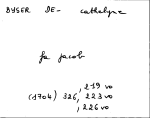 DYSER DE- cathelyne
fa jacob
, 219 vo
(1704) 326, 223 vo
, 226 vo